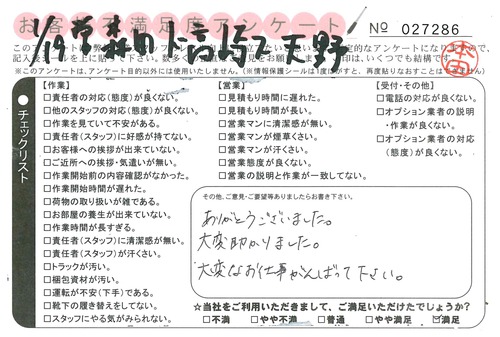 お客様満足度アンケート
№ 027286
1/19
チェックリスト
【作業】
□責任者の対応(態度)が良くない。
□他のスタッフの対応(態度)が良くない。
□作業を見ていて不安がある。
□責任者(スタッフ)に好感が持てない。
□お客様への挨拶が出来ていない。
□ご近所への挨拶・気遣いが無い。
□作業開始前の内容確認がなかった。
□作業開始時間が遅れた。
□荷物の取り扱いが雑である。
□お部屋の養生が出来ていない。
□作業時間が長すぎる。
□責任者(スタッフ)に清潔感が無い。
□責任者(スタッフ)が汗くさい。
□トラックが汚い。
□梱包資材が汚い。
□運転が不安(下手)である。
□靴下の履き替えをしてない。
□スタッフにやる気がみられない。
【営業】
□見積もり時間に遅れた。
□見積もり時間が長い。
□営業マンに清潔感が無い。
□営業マンが煙草くさい。
□営業マンが汗くさい。
□営業態度が良くない。
□営業の説明と作業が一致してない。
【受付・その他】
□電話の対応が良くない。
□オプション業者の説明
・作業が良くない。
□オプション業者の対応
(態度)が良くない。
その他、ご意見・ご要望等ありましたらお書き下さい。
ありがとうございました。
大変助かりました。
大変なお仕事がんばって下さい。
☆当社をご利用いただきまして、ご満足いただけたでしょうか?
□不満 □やや不満 □普通 □やや満足 □満足